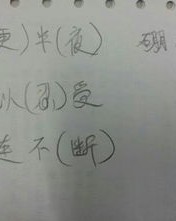 更)半(夜) 硼
以(忍)受
连不(断)